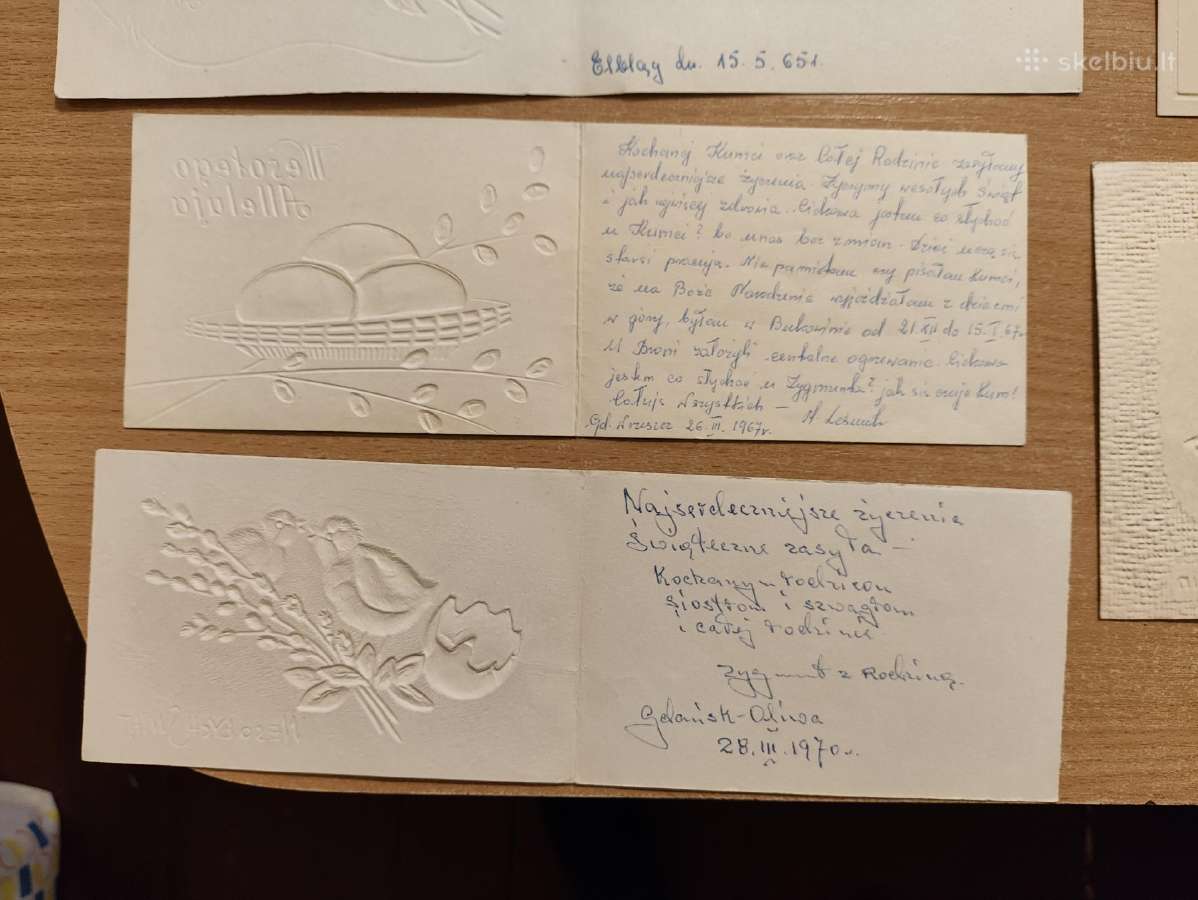 Elbląg dn. 15. 5. 651.
skelbiu.lt
Wesołego
Alleluja
Kochanej Kumci oraz Całej Rodzinie zasyłamy
najserdeczniejsze życzenia. Życzymy wesołych Świąt
i jak najwięcej zdrowia. Ciekawa jestem co słychać
u Kumci? bo u nas bez zmian. Dzieci uczą się,
starsi pracują. Nie pamiętam czy pisałam Kumci,
że na Boże Narodzenie wyjeżdżałam z dziećmi
w góry, byłam w Bukowinie od 21.XII do 15.I.67r
U Broni założyli centralne ogrzewanie. Ciekawa
jestem co słychać u Zygmunta? jak się czuje Kum?
Całuję Wszystkich —
Gd. Wrzeszcz 26.III.1967r.
WESOŁYCH ŚWIĄT
Najserdeczniejsze życzenia
Świąteczne zasyła —
Kochanym rodzicom
siostrom i szwagrom
i całej rodzinie
Zygmunt z Rodziną.
Gdańsk-Oliwa
28.III.1970r.